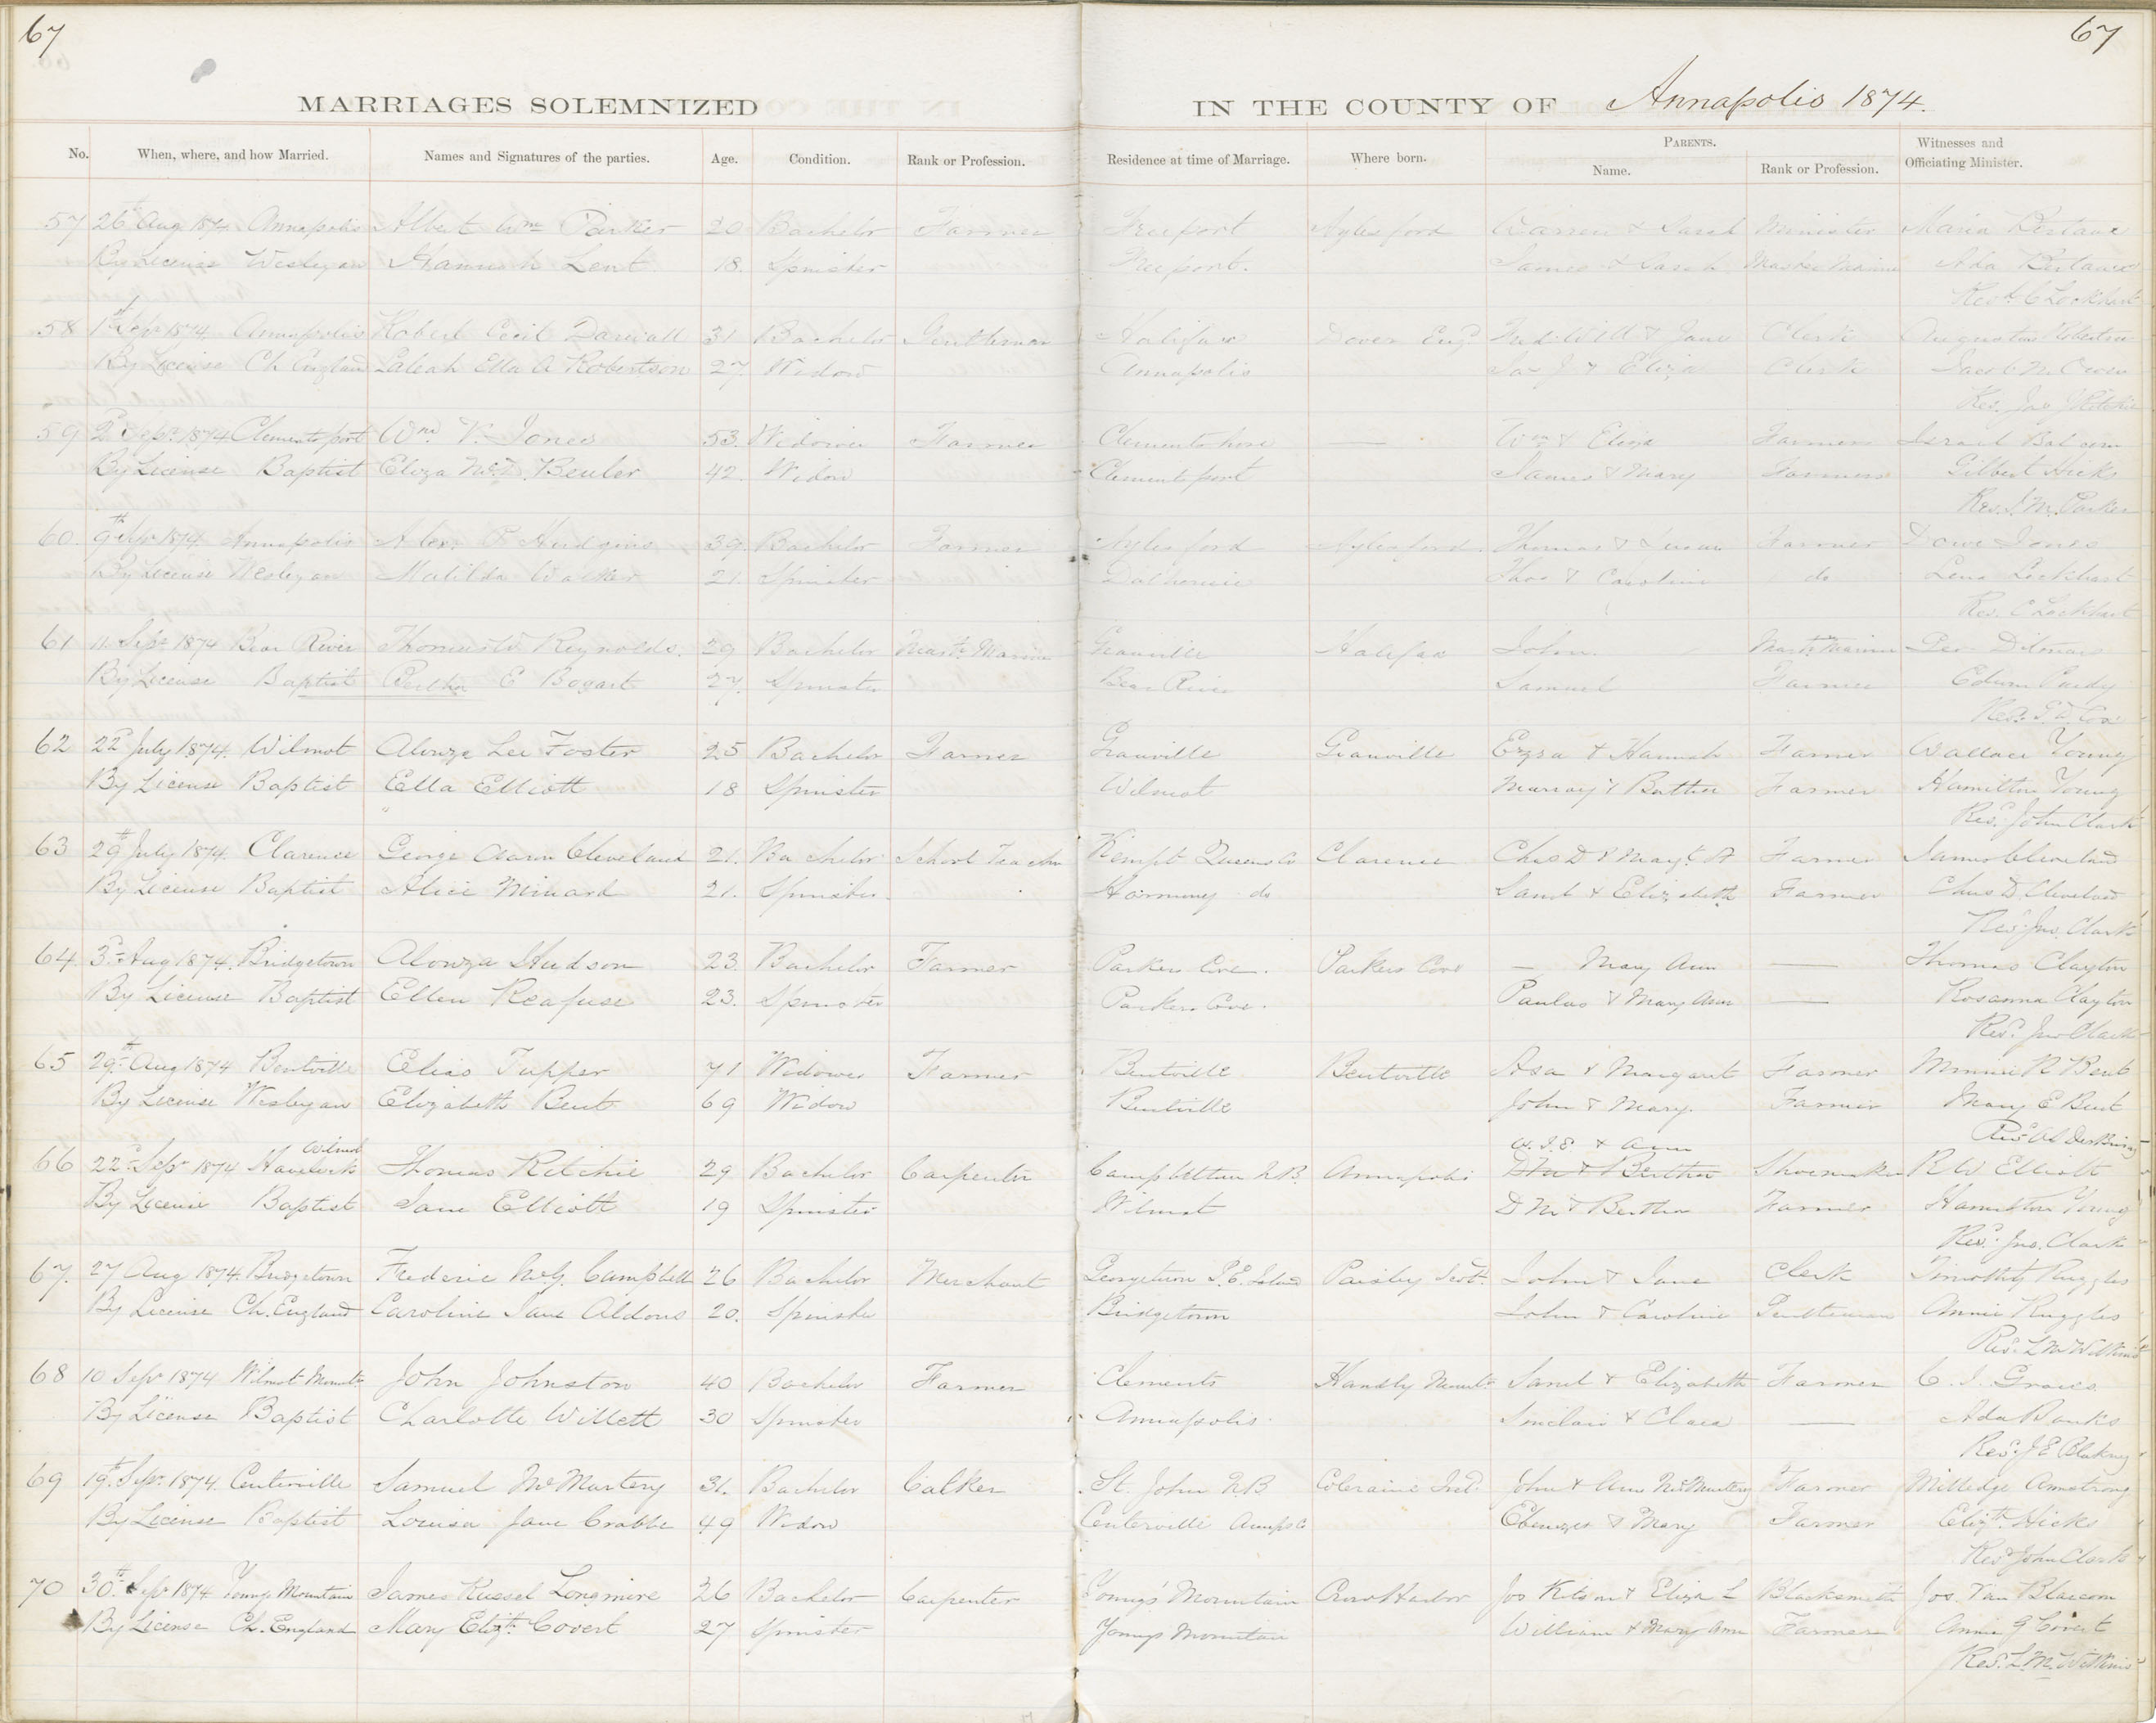 67 67
MARRIAGES SOLEMNIZED IN THE COUNTY OF Annapolis 1874.
No. When, where, and how Married. Names and Signatures of the parties. Age. Condition. Rank or Profession. Residence at time of Marriage. Where born. PARENTS. Name. Rank or Profession. Witnesses and Officiating Minister.
57 26th Aug 1874 Annapolis Albert Wm Parker 20 Bachelor Farmer Freeport Aylesford Warren & Sarah Minister Maria
By License Wesleyan Hannah Lent 18. Spinster Freeport. James & Sarah Master Mariner Ada
Rev. C Lockhart
58 1st Sept 1874 Annapolis Robert Cecil 31 Bachelor Gentleman Halifax Dover Engd Fred. Will & Jane Clerk Augustus Robertson
By License Ch England Ella A Robertson 27 Widow Annapolis Jas J & Eliza Clerk Jacob M. Crow
Rev. Jas J Ritchie
59 2d Sept. 1874 Clementsport Wm V. Jones 53. Widower Farmer — Wm & Eliza Farmer Israel Balcom
By License Baptist Eliza Beeler 42. Widow Clementsport James & Mary Farmer Gilbert Hicks
Rev. J. M. Parker
60. 9th Sepr 1874 Annapolis Alex. P Hudgins 39. Bachelor Farmer Aylesford Aylesford. Thomas & Susan Farmer Jones
By License Wesleyan Matilda Walker 21. Spinster Dalhousie Thos & Caroline do Lena Lockhart
Rev. C Lockhart
61 11 Sept 1874 Bear River Thomas W Reynolds. 29 Bachelor Mastr. Mariner Granville Halifax John. Mastr Mariner Geo Ditmars
By License Baptist Bertha E Bogart 27. Spinster Bear River Samuel Farmer Edwin Purdy
Rev.
62 22d July 1874. Wilmot Alonza Lee Foster 25 Bachelor Farmer Granville Granville Ezra & Hannah Farmer Wallace Young
By License Baptist Ella Elliott 18 Spinster Wilmot Murray & Farmer Hamilton Young
Revd. John Clark
63 29th July 1874. Clarence George Aaron Cleveland 21. Bachelor School Teacher Kempt Queens Co Clarence Chas D & Margt A Farmer James Cleveland
By License Baptist Alice Minard 21. Spinster. Harmony do Saml & Elizabeth Farmer Chas D. Cleveland
Revd. Jno. Clark
64. 3d Aug 1874. Bridgetown Alonza Hudson 23. Bachelor Farmer Parkers Cove. Parkers Cove — Mary Ann — Thomas Clayton
By License Baptist Ellen Reafuse 23. Spinster Parkers Cove. Paulus & Mary Ann — Rosanna Clayton
Revd. Jno Clark
65 29th Aug 1874 Bentville Elias Tupper 71 Widower Farmer Bentville Bentville Asa & Margaret Farmer Minnie R Bent
By License Wesleyan Elizabeth Bent 69 Widow Bentville John & Mary. Farmer Mary E Bent
Revd. A S DesBrisay
Wilmot W. I. E & Ann
66 22d Sepr 1874 Havelock Thomas Ritchie 29 Bachelor Carpenter Campbellton N.B. Annapolis D M & Bertha Shoemaker R W Elliott
By License Baptist Jane Elliott 19 Spinster Wilmot D M & Bertha Farmer Hamilton Young
Revd. Jno. Clark
67. 27 Aug 1874. Bridgetown Frederic McG. Campbell 26 Bachelor Merchant Georgetown P. E. Island Paisley Scotd. John & Jane Clerk Timothy Ruggles
By License Ch. England Caroline Jane Aldous 20. Spinster Bridgetown John & Caroline Gentleman Annie Ruggles
Revd. L M Wilkins
68 10 Sepr 1874 Wilmot Mountn John Johnston 40 Bachelor Farmer Clements Handly Mountn Saml & Elizabeth Farmer C. I. Graves
By License Baptist Charlotte Willett 30 Spinster Annapolis. Sinclair & Clara — Ada Banks
Revd. J E Blakney
69 19th Sepr. 1874. Centerville Samuel McMurtery 31. Bachelor Calker St. John N.B Coleraine Ired. John & Ann McMurtery Farmer Milledge Armstrong
By License Baptist Louisa Jane Crabbe 49 Widow Centerville Annaps Co Ebenezer & Mary Farmer Elizth Hicks
Revd John Clark
70 30th Sepr 1874 Youngs Mountain James Russel Longmire 26 Bachelor Carpenter Young's Mountain Jos & Eliza L Blacksmith Jos. Van Blarcom
By License Ch. England Mary Elizth. Covert 27 Spinster Youngs Mountain William & Mary Ann Farmer Annie G Covert
Revd. L. M. Wilkins